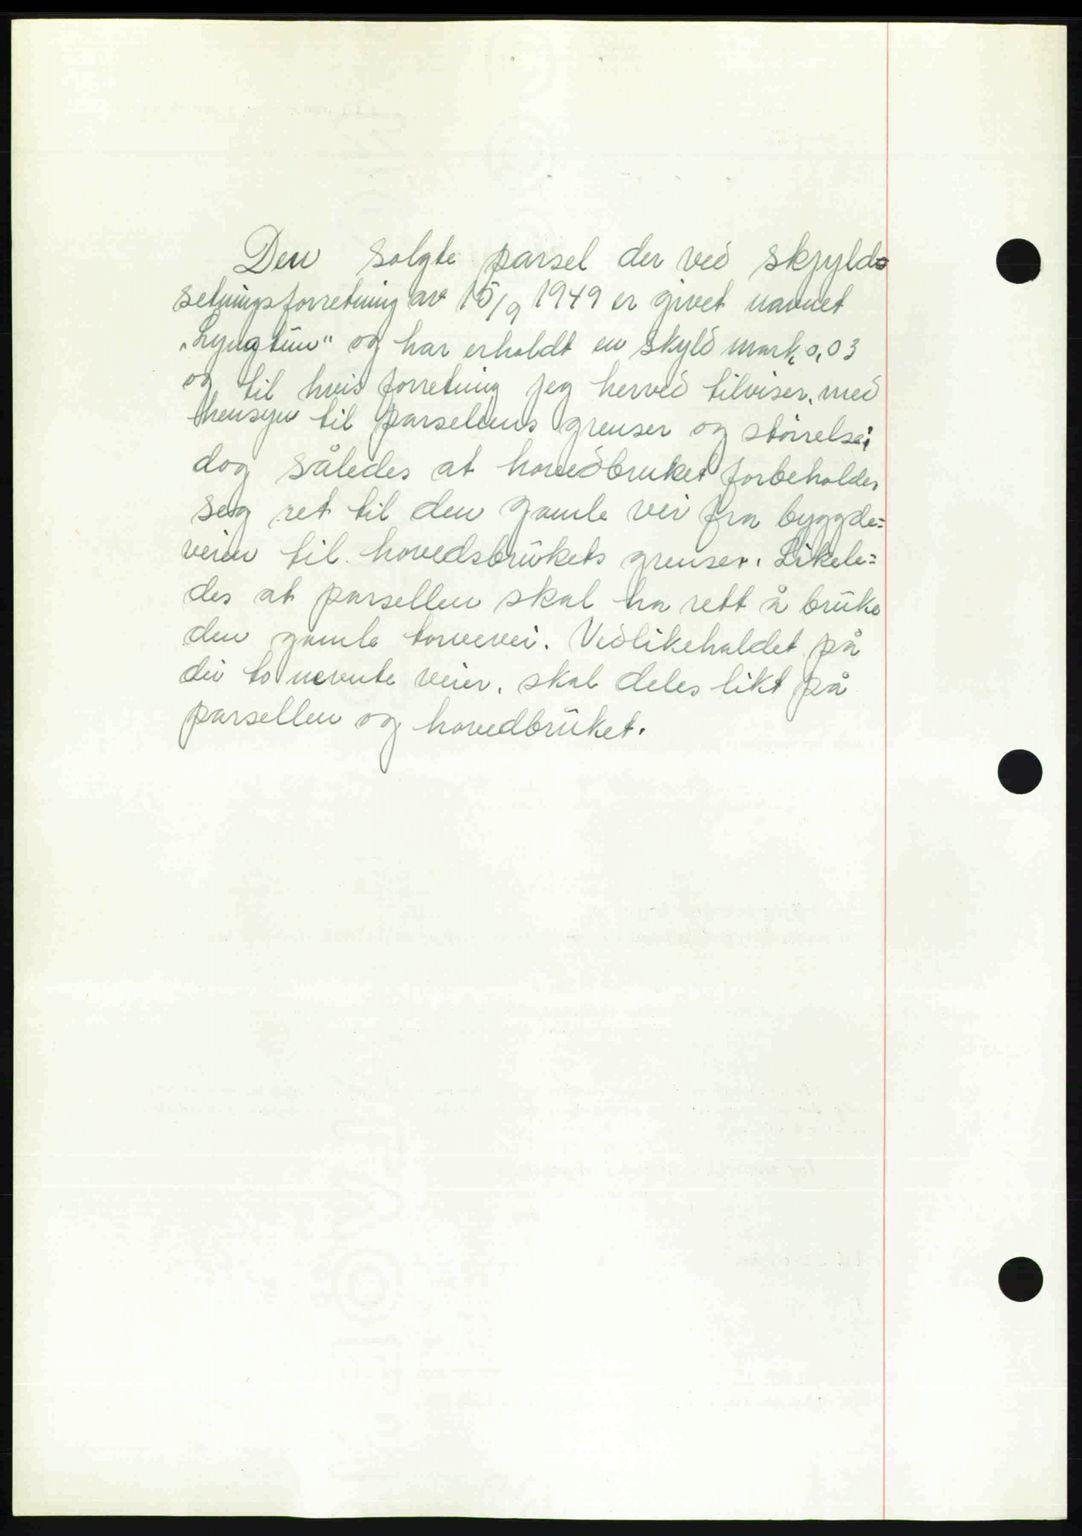 Den solgte parsel der ved skjyld=
setningsforretning av 15/9 1949 er givet navnet
„Lyngtun" og har erholdt en skyld mark 0,03
og til hvis forretning jeg herved tilviser, med
hensyn til parselens grenser og størrelse;
dog således at hovedbruket forbeholder
seg ret til den gamle vei fra byggde=
veien til hovedsbrukets grenser. Likele=
des at parsellen skal ha rett å bruke
den gamle torvevei. Vedlikehaldet på
dei to nevnte veier, skal deles likt på
parsellen og hovedbruket.